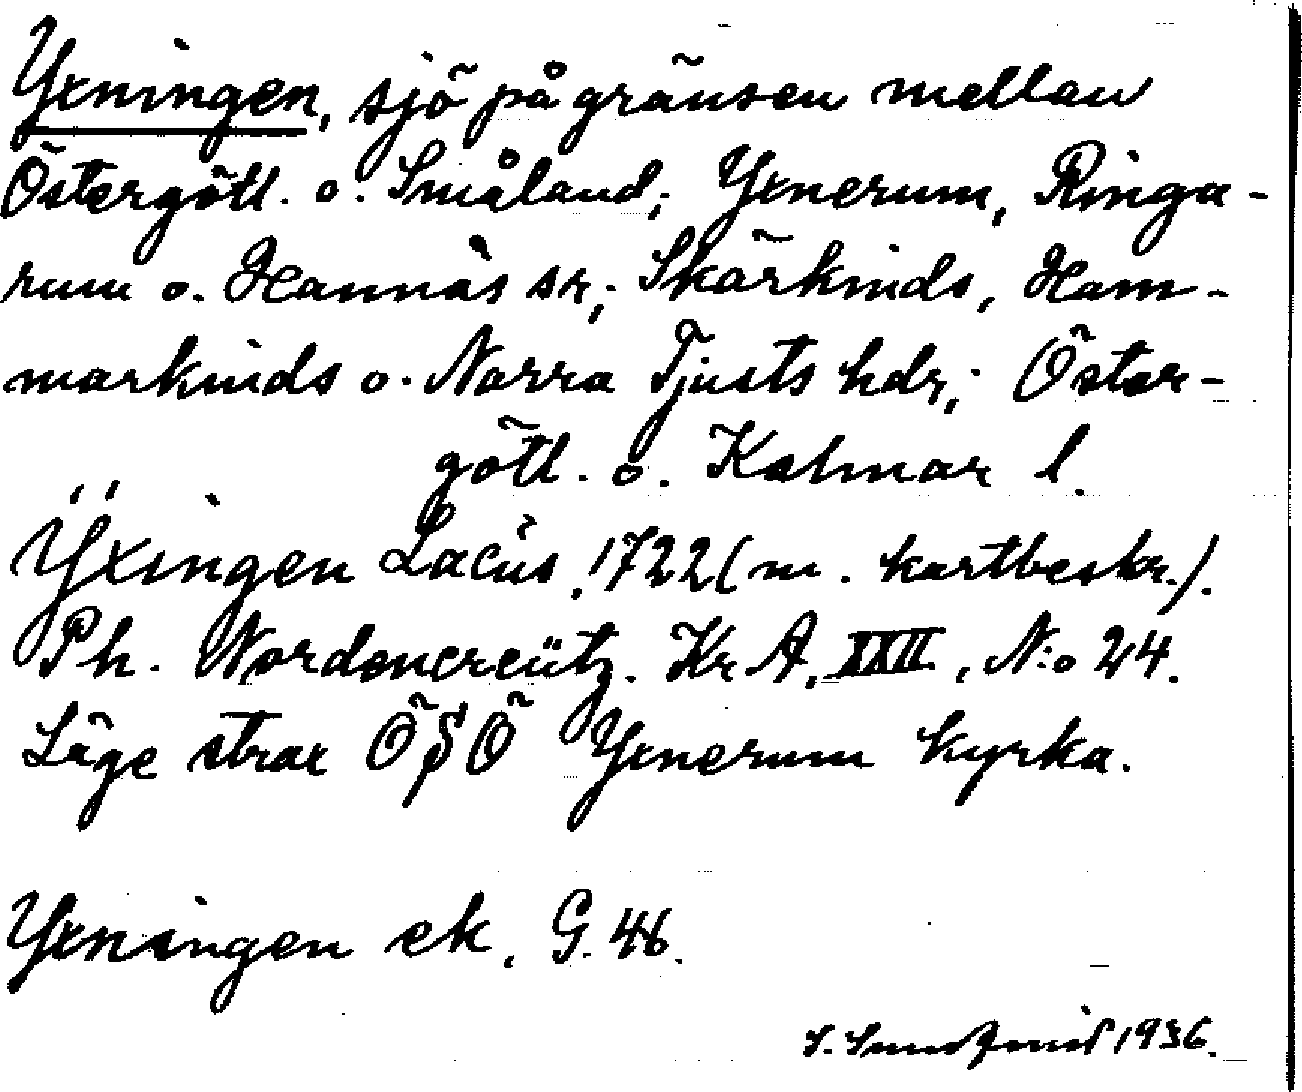 Yxningen, sjö på gränsen mellan
Östergötl. o. Småland; Yxnerum, Ringa-
rum o. Hannäs sr; Skärkinds, Ham-
markinds o. Norra Tjusts hdr; Öster-
götl. o. Kalmar l.
Ÿxingen Lacus, 1722 (m. kartbeskr.).
Ph. Nordencreütz. Kr. A. XXII, N:o 24.
Läge strax ÖSÖ Yxnerum kyrka.
Yxningen ek. G. 46.
S. 1936.